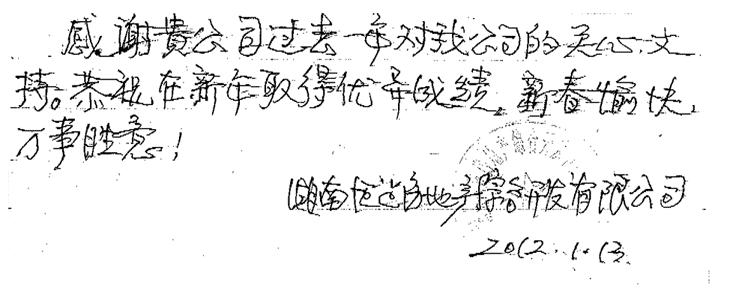 感谢贵公司过去一年对我公司的关心、支
持。恭祝在新年取得优异成绩，新春愉快，
万事胜意！
湖南恒道房地产综合开发有限公司
2012.1.13.